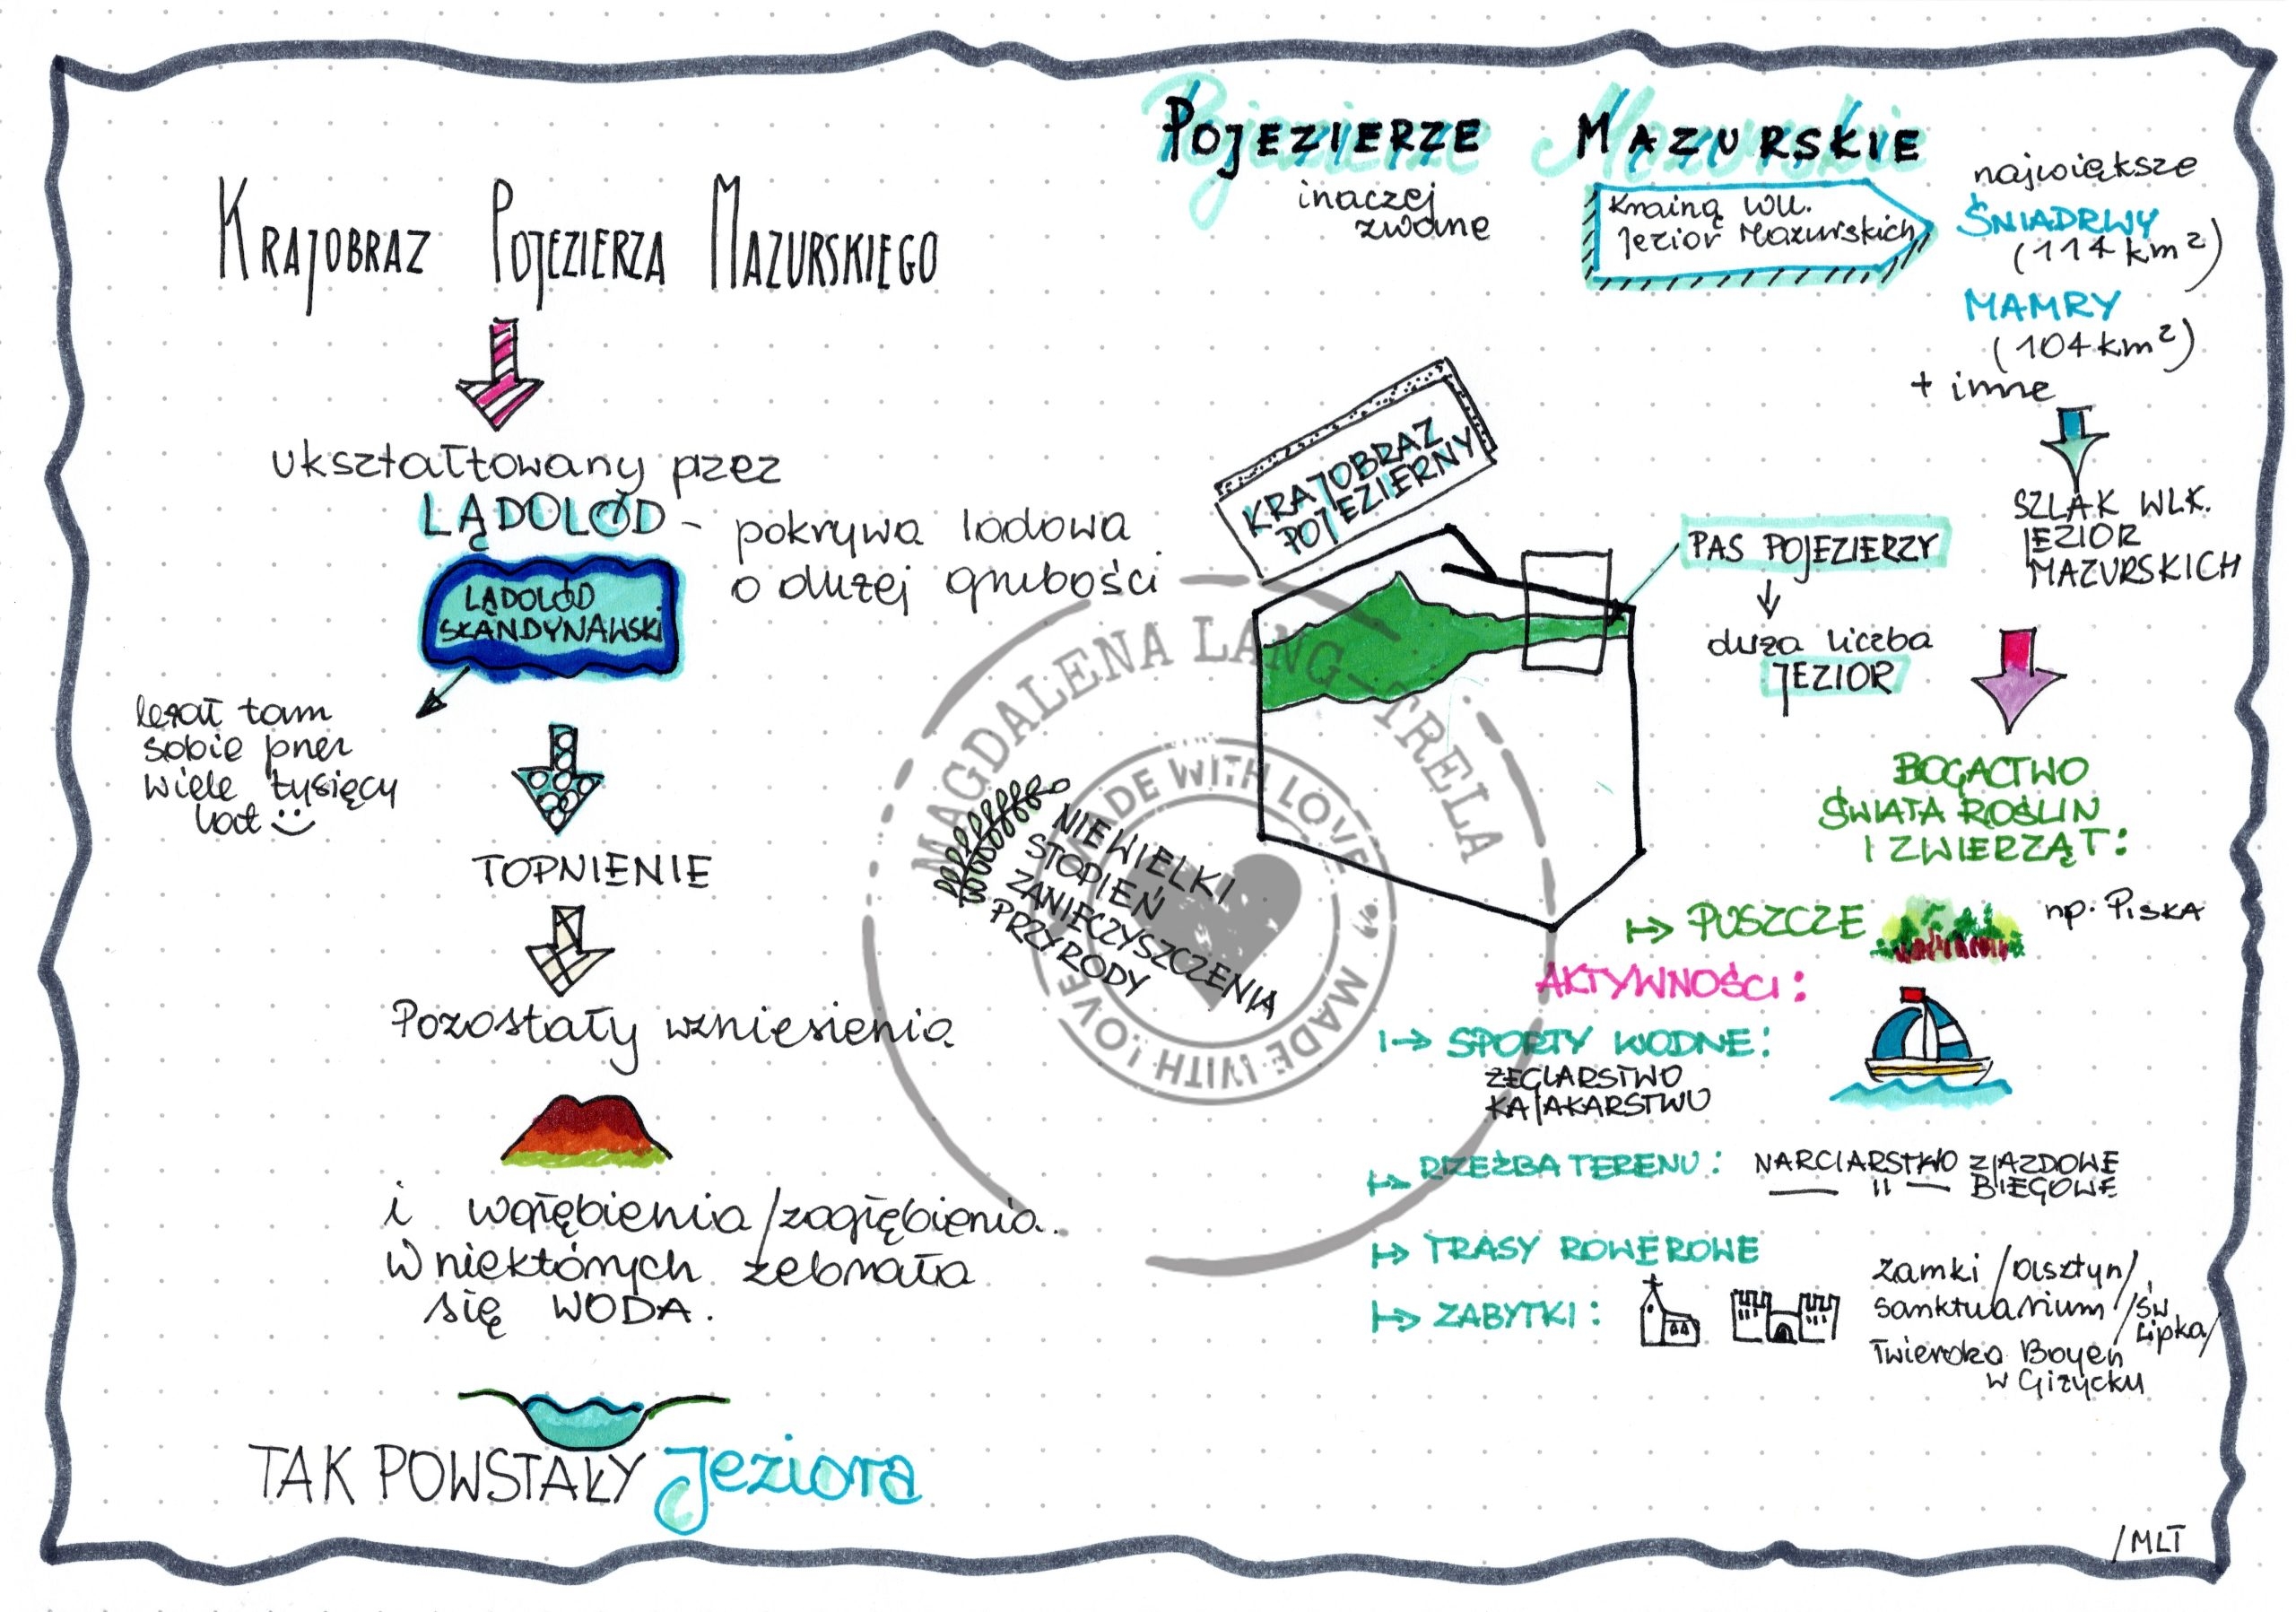 KRAJOBRAZ POJEZIERZA MAZURSKIEGO
ukształtowany przez
LĄDOLÓD - pokrywa lodowa
o dużej grubości
LĄDOLÓD
SKANDYNAWSKI
leżał tam
sobie przez
wiele tysięcy
lat
TOPNIENIE
Pozostały wzniesienia
i wgłębienia/zagłębienia.
W niektórych zebrała
się WODA.
TAK POWSTAŁY Jeziora
POJEZIERZE MAZURSKIE
inaczej
zwane
Krainą Wlk.
Jezior Mazurskich
największe
ŚNIADRWY
(114 km²)
MAMRY
(104 km²)
+ inne
SZLAK WLK.
JEZIOR
MAZURSKICH
KRAJOBRAZ
POJEZIERNY
PAS POJEZIERZY
duża liczba
JEZIOR
NIEWIELKI
STOPIEŃ
ZANIECZYSZCZENIA
PRZYRODY
BOGACTWO
ŚWIATA ROŚLIN
I ZWIERZĄT:
PUSZCZE np. PISKA
AKTYWNOŚCI:
SPORTY WODNE:
ŻEGLARSTWO
KAJAKARSTWO
RZEŹBA TERENU: NARCIARSTWO ZJAZDOWE
— 11 — BIEGOWE
TRASY ROWEROWE
ZABYTKI:
zamki /Olsztyn/,
sanktuarium /Św.
Lipka/
Twierdza Boyen
w Giżycku
/MLT
MAGDALENA LANG-TRELA
MADE WITH LOVE
MADE WITH LOVE
MADE WITH LOVE